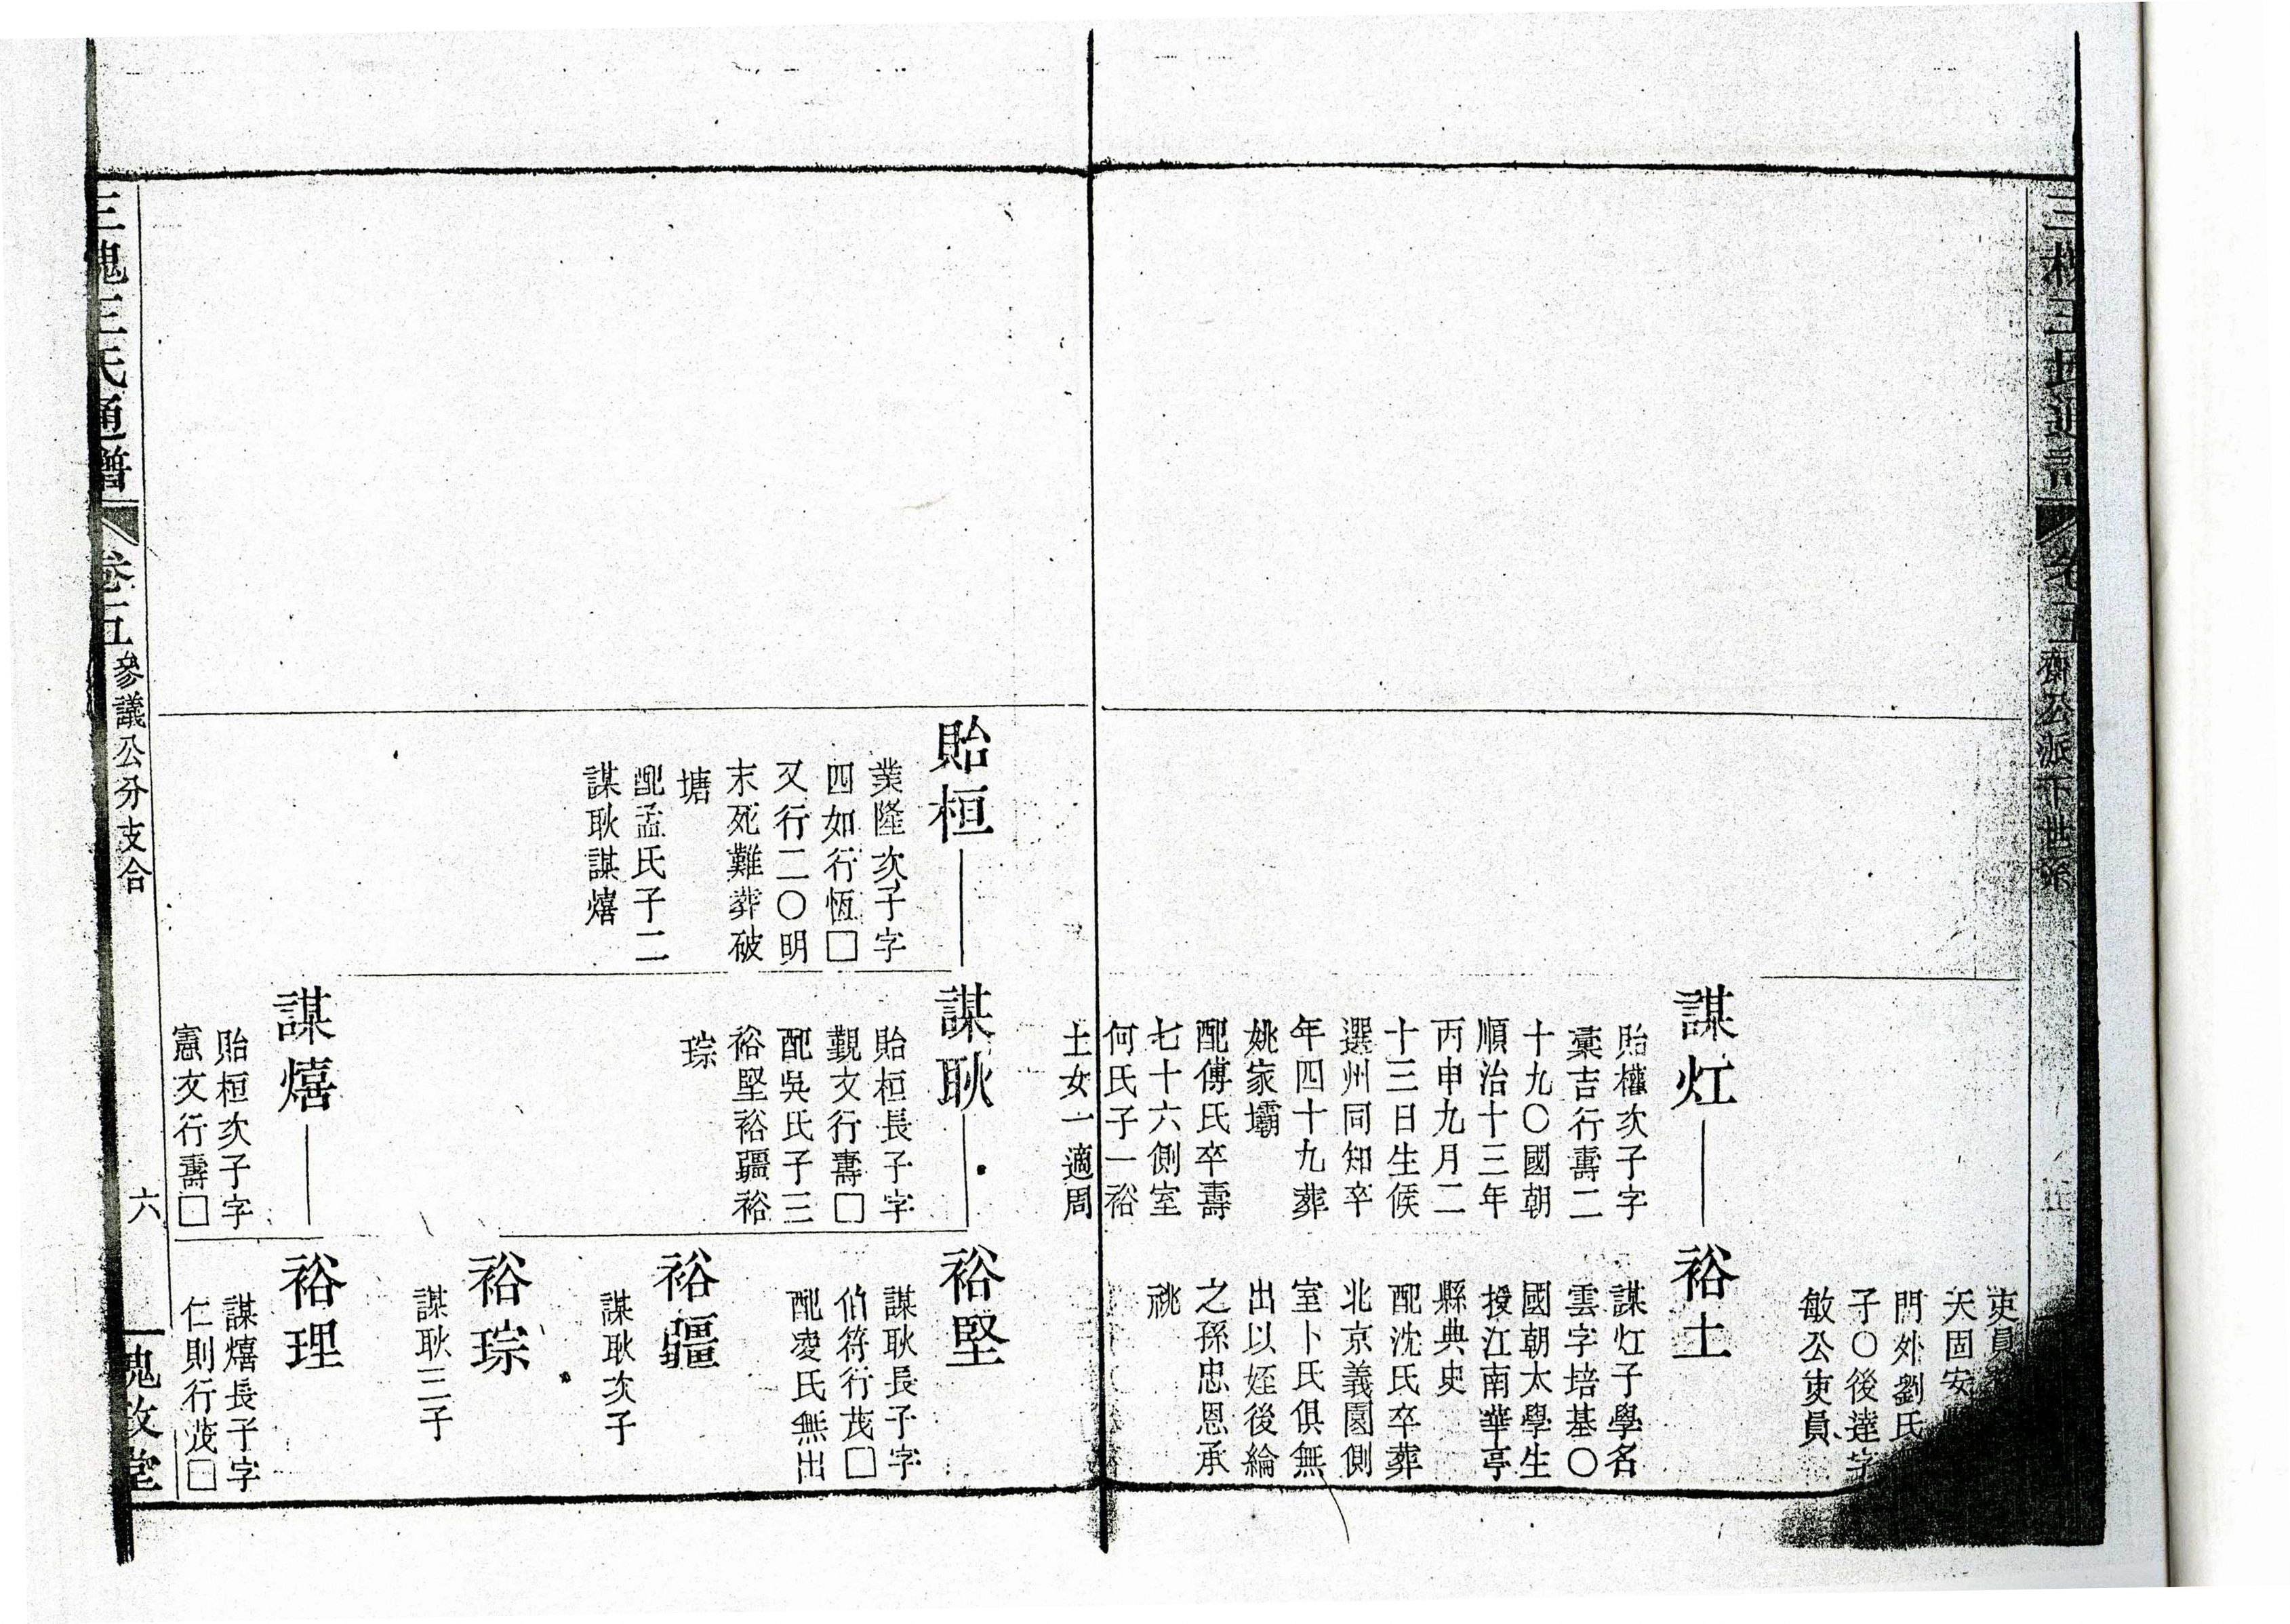 三槐王氏通譜
卷五
齋公派下世系
吏員
天固安
門外劉氏
子〇後達字
敏公吏員
謀灴
貽權次子字
彙吉行壽二
十九〇國朝
順治十三年
丙申九月二
十三日生候
選州同知卒
年四十九葬
姚家壩
配傅氏卒壽
七十六側室
何氏子一裕
土女一適周
裕土
謀灴子學名
雲字培基〇
國朝太學生
授江南華亭
縣典史
配沈氏卒葬
北京義園側
室卜氏俱無
出以姪後綸
之孫忠恩承
祧
貽桓
業隆次子字
四如行恆□
又行二〇明
末死難葬破
塘
配孟氏子二
謀耿謀熺
謀耿
貽桓長子字
覲文行壽□
配吳氏子三
裕堅裕疆裕
琮
裕堅
謀耿長子字
伯符行茂□
配凌氏無出
裕疆
謀耿次子
裕琮
謀耿三子
謀熺
貽桓次子字
憲文行壽□
裕理
謀熺長子字
仁則行茂□
三槐王氏通譜
卷五
參議公分支合
六
槐政堂